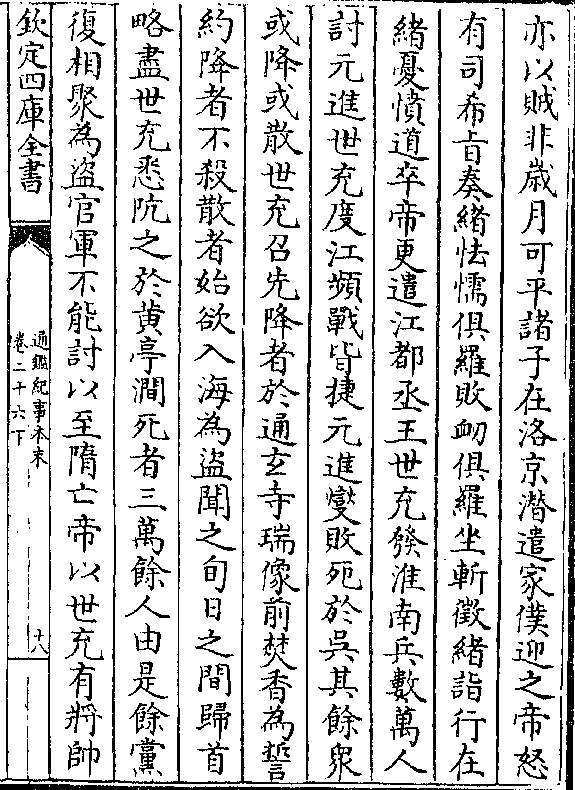 亦以賊非歲月可平諸子在洛京潛遣家僕迎之帝怒
有司希㫖奏緒怯懦俱羅敗衂俱羅坐斬徵緒詣行在
緒憂憤道卒帝更遣江都丞王世充發淮南兵數萬人
討元進世充度江頻戰皆捷元進燮敗死於吳其餘衆
或降或散世充召先降者於通玄寺瑞像前焚香為誓
約降者不殺散者始欲入海為盜聞之旬日之間歸首
略盡世充悉阬之於黃亭澗死者三萬餘人由是餘黨
復相聚為盜官軍不能討以至隋亡帝以世充有將帥
欽定四庫全書
通鑑紀事本末
卷二十六下
十八